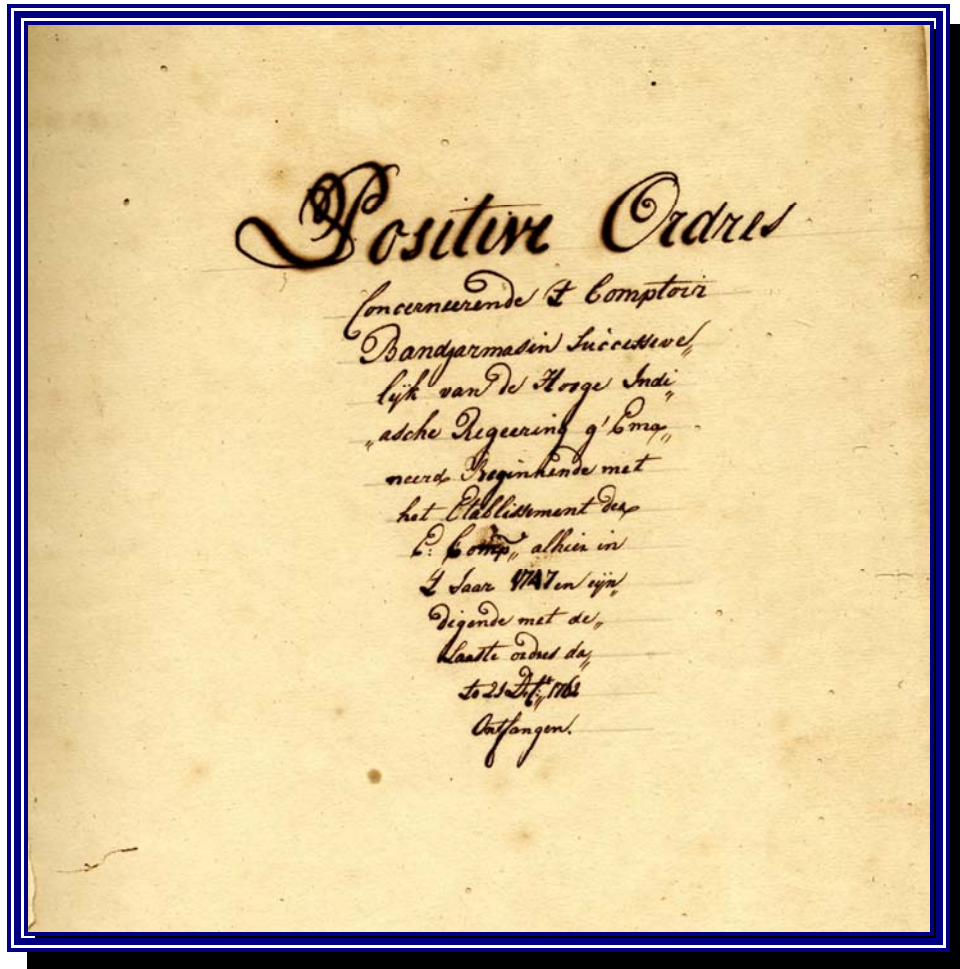 Positive Ordres
Concerneerende 't Comptoir
Bandjarmasin Successive„
lijk van de Hooge Indi„
„asche Regeering g'Ema„
neerd Beginnende met
het Etablissement der
E: Comp„ alhier in
't Jaar 1747 en eijn„
digende met de„
Laaste ordres da„
to 21 1762
Ontfangen.